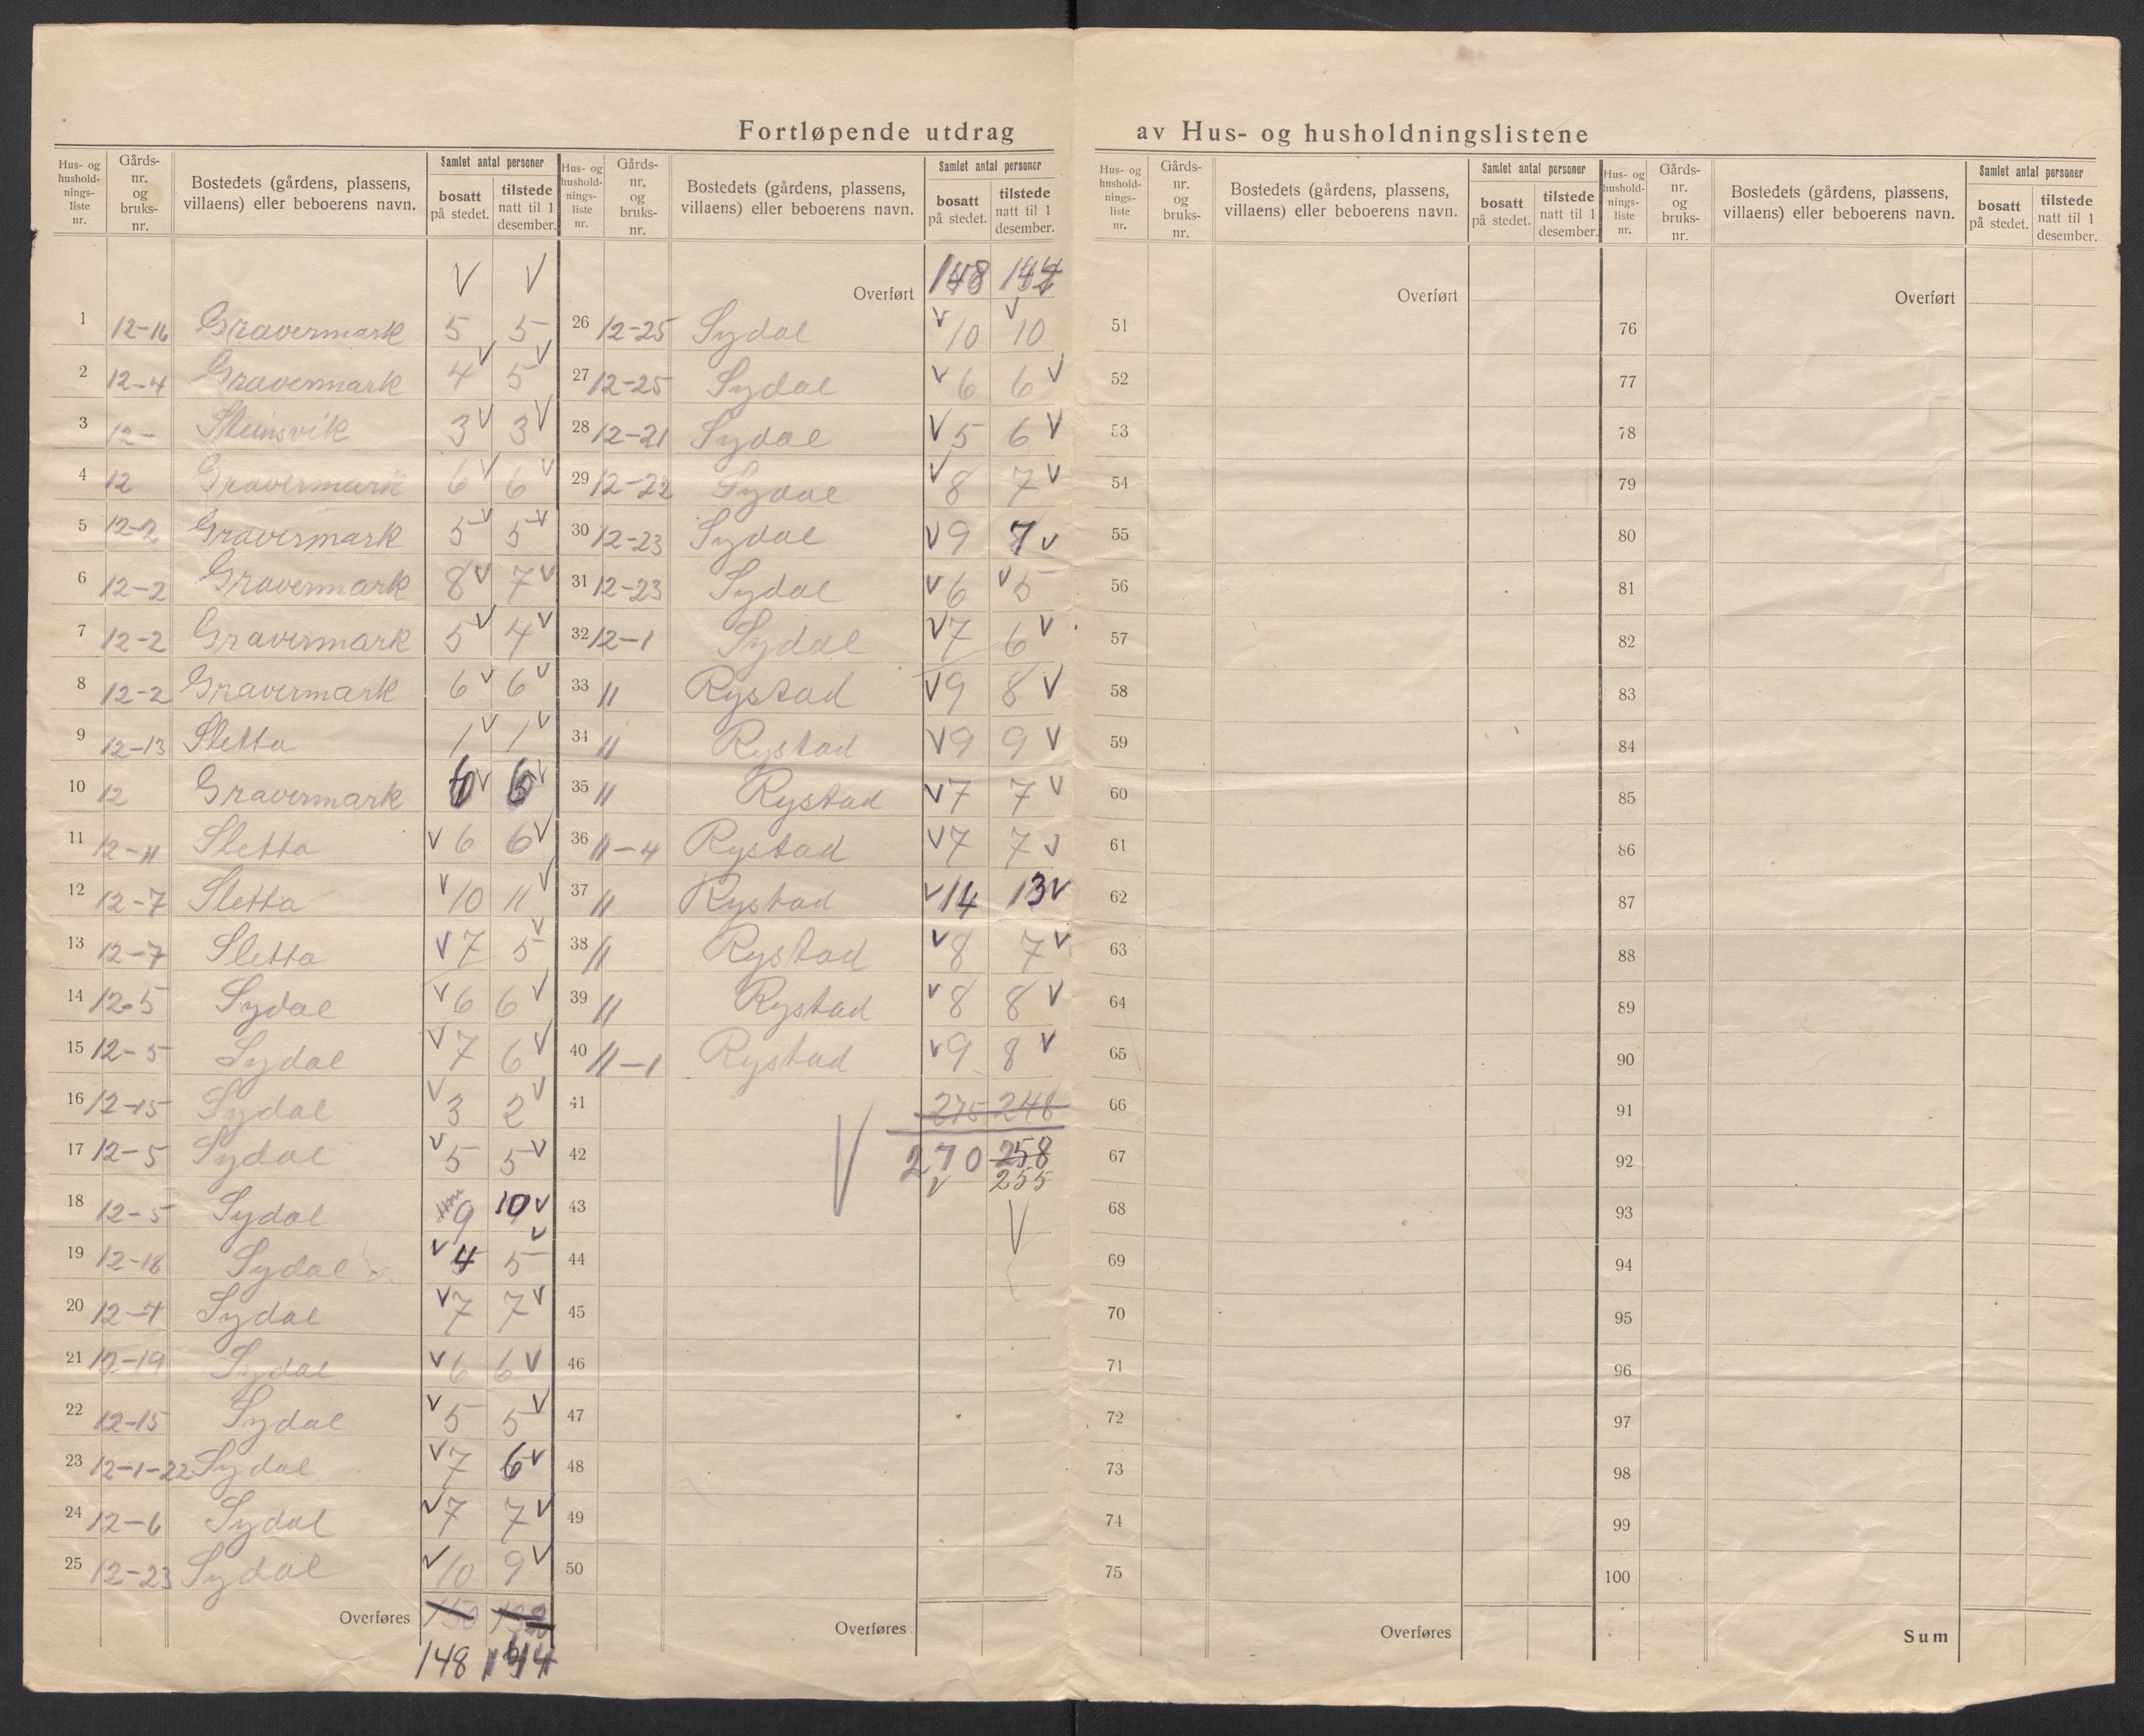 Fortløpende utdrag av Hus- og husholdningslistene
Hus- og hushold- nings- liste nr. | Gårds- nr. og bruks- nr. | Bostedets (gårdens, plassens, villaens) eller beboerens navn. | Samlet antal personer | bosatt på stedet. | tilstede natt til 1 desember.
V V
1 12-16 Gravermark 5 5
2 12-4 Gravermark 4 V 5 V
3 12- Steinsvik 3 V 3 V
4 12 Gravermark 6 V 6 V
5 12-2 Gravermark 5 V 5 V
6 12-2 Gravermark 8 V 7 V
7 12-2 Gravermark 5 V 4 V
8 12-2 Gravermark 6 V 6 V
9 12-13 Sletta 1 V 1 V
10 12 Gravermark V 6 V
11 12-11 Sletta V 6 6 V
12 12-7 Sletta V 10 11 V
13 12-7 Sletta V 7 5 V
14 12-5 Sydal V 6 6 V
15 12-5 Sydal V 7 6 V
16 12-15 Sydal V 3 2 V
17 12-5 Sydal V 5 5 V
18 12-5 Sydal 9 10 V
19 12-18 Sydal V 4 5 V
20 12-4 Sydal V 7 7 V
21 12-19 Sydal V 6 6 V
22 12-15 Sydal V 5 5 V
23 12-1-22 Sydal V 7 6 V
24 12-6 Sydal V 7 7 V
25 12-23 Sydal V 10 9 V
Overføres 150 132
148 144
Hus- og hushold- nings- liste nr. | Gårds- nr. og bruks- nr. | Bostedets (gårdens, plassens, villaens) eller beboerens navn. | Samlet antal personer | bosatt på stedet. | tilstede natt til 1 desember.
Overført 148 144
26 12-25 Sydal V 10 V 10
27 12-25 Sydal V 6 6 V
28 12-21 Sydal V 5 6 V
29 12-22 Sydal V 8 7 V
30 12-23 Sydal V 9 7 V
31 12-23 Sydal V 6 V 5
32 12-1 Sydal V 7 6 V
33 11 Rystad V 9 8 V
34 11 Rystad V 9 9 V
35 11 Rystad V 7 7 V
36 11-4 Rystad V 7 7 V
37 11 Rystad V 14 13 V
38 11 Rystad V 8 7 V
39 11 Rystad V 8 8 V
40 11-1 Rystad V 9 8 V
41 275 248
42 V 270 258
V 255
43 V
44
45
46
47
48
49
50
Overføres
Hus- og hushold- nings- liste nr. | Gårds- nr. og bruks- nr. | Bostedets (gårdens, plassens, villaens) eller beboerens navn. | Samlet antal personer | bosatt på stedet. | tilstede natt til 1 desember.
Overført
51
52
53
54
55
56
57
58
59
60
61
62
63
64
65
66
67
68
69
70
71
72
73
74
75
Overføres
Hus- og hushold- nings- liste nr. | Gårds- nr. og bruks- nr. | Bostedets (gårdens, plassens, villaens) eller beboerens navn. | Samlet antal personer | bosatt på stedet. | tilstede natt til 1 desember.
Overført
76
77
78
79
80
81
82
83
84
85
86
87
88
89
90
91
92
93
94
95
96
97
98
99
100
Sum